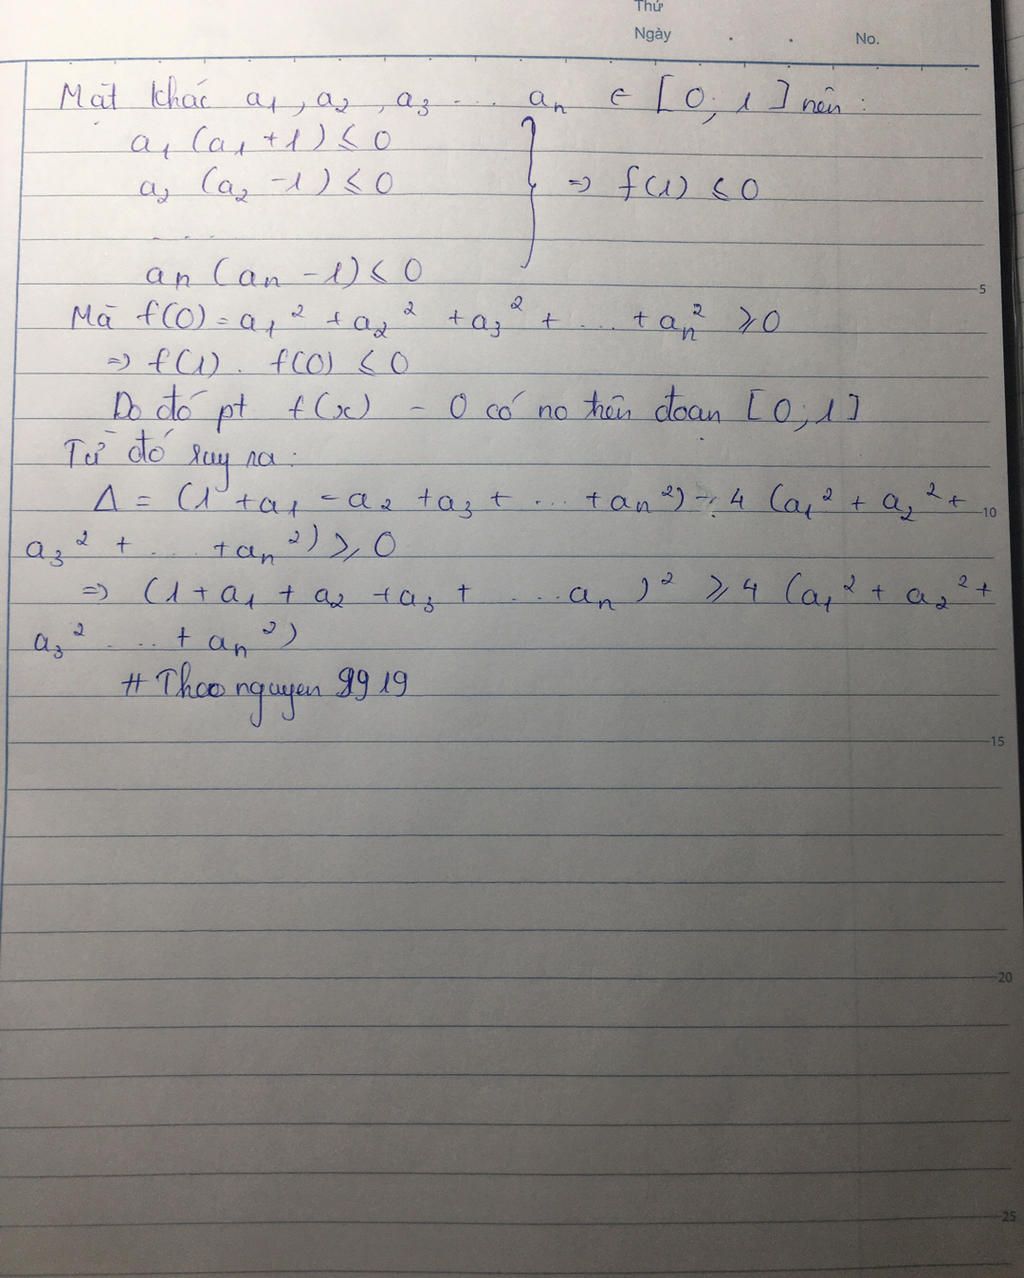 Thứ
Ngày . . No.
Mặt khác a₁, a₂, a₃ ... aₙ ∈ [0; 1] nên:
a₁ (a₁ + 1) ≤ 0
a₂ (a₂ - 1) ≤ 0 } => f(1) ≤ 0
...
aₙ (aₙ - 1) ≤ 0
5
Mà f(0) = a₁² + a₂² + a₃² + ... + aₙ² ≥ 0
=> f(1) . f(0) ≤ 0
Do đó pt f(x) - 0 có no trên đoạn [0; 1]
Từ đó suy ra:
Δ = (1 + a₁ - a₂ + a₃ + ... + aₙ²) - 4 (a₁² + a₂² +
10
a₃² + ... + aₙ²) ≥ 0
=> (1 + a₁ + a₂ + a₃ + ... aₙ)² ≥ 4 (a₁² + a₂² +
a₃² ... + aₙ²)
# Thaonguyen 9919
15
20
25